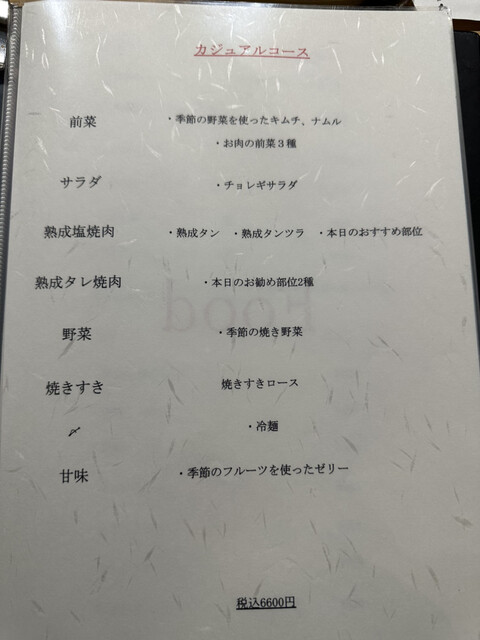 カジュアルコース
前菜 ・季節の野菜を使ったキムチ、ナムル
・お肉の前菜３種
サラダ ・チョレギサラダ
熟成塩焼肉 ・熟成タン ・熟成タンツラ ・本日のおすすめ部位
熟成タレ焼肉 ・本日のお勧め部位2種
野菜 ・季節の焼き野菜
焼きすき 焼きすきロース
〆 ・冷麺
甘味 ・季節のフルーツを使ったゼリー
Food
税込6600円